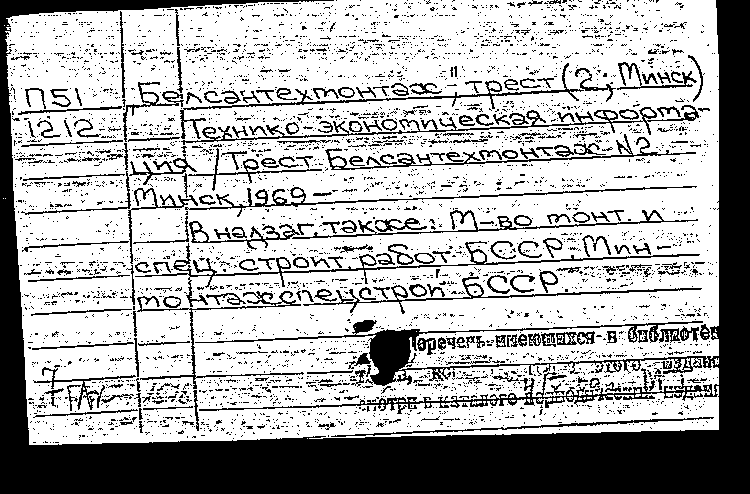 П51 "Белсантехмонтаж", трест (2; Минск)
1212 Технико-экономическая информа-
ция / Трест Белсантехмонтаж N2.
Минск, 1969 –
В надзаг. также: М-во монт. и
спец. строит. работ БССР. Мин-
монтажспецстрой БССР.
Перечень имеющихся в библиотек
этого издани
смотри в каталоге периодических издани
7